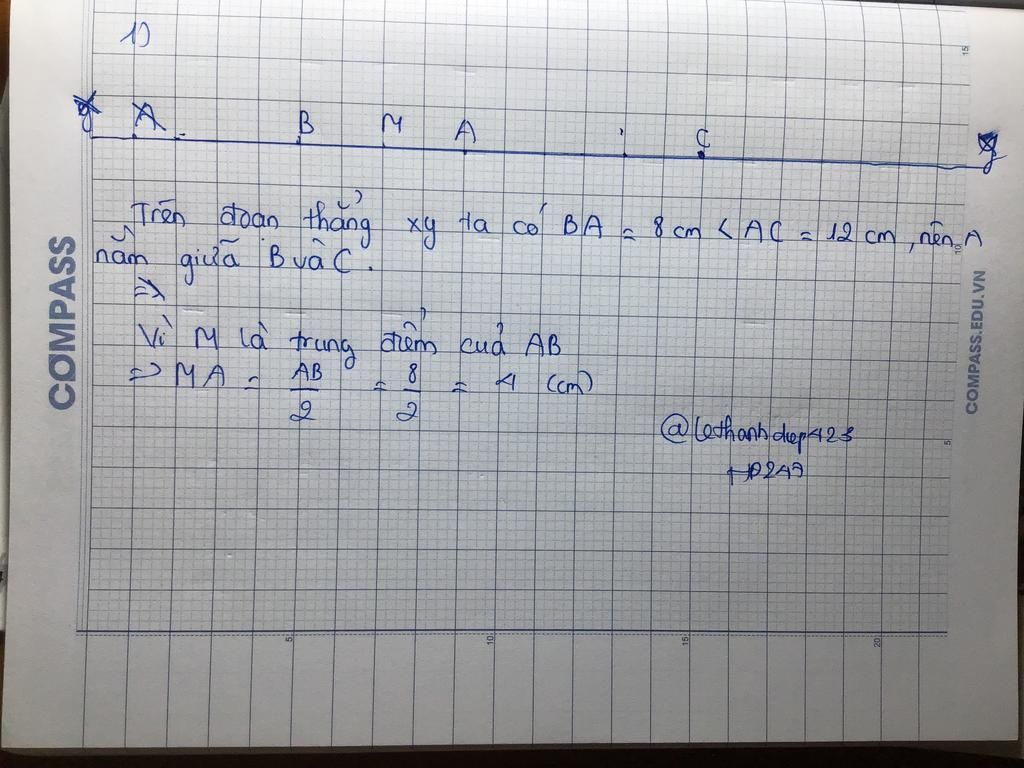 1)
B M A C
y
Trên đoạn thẳng xy ta có BA = 8 cm < AC = 12 cm, nên A
nằm giữa B và C.
=>
Vì M là trung điểm của AB
=> MA = AB/2 = 8/2 = 4 (cm)
@lethanhdiep423
H0247
COMPASS
COMPASS.EDU.VN
5 10 15 20
5 10 15